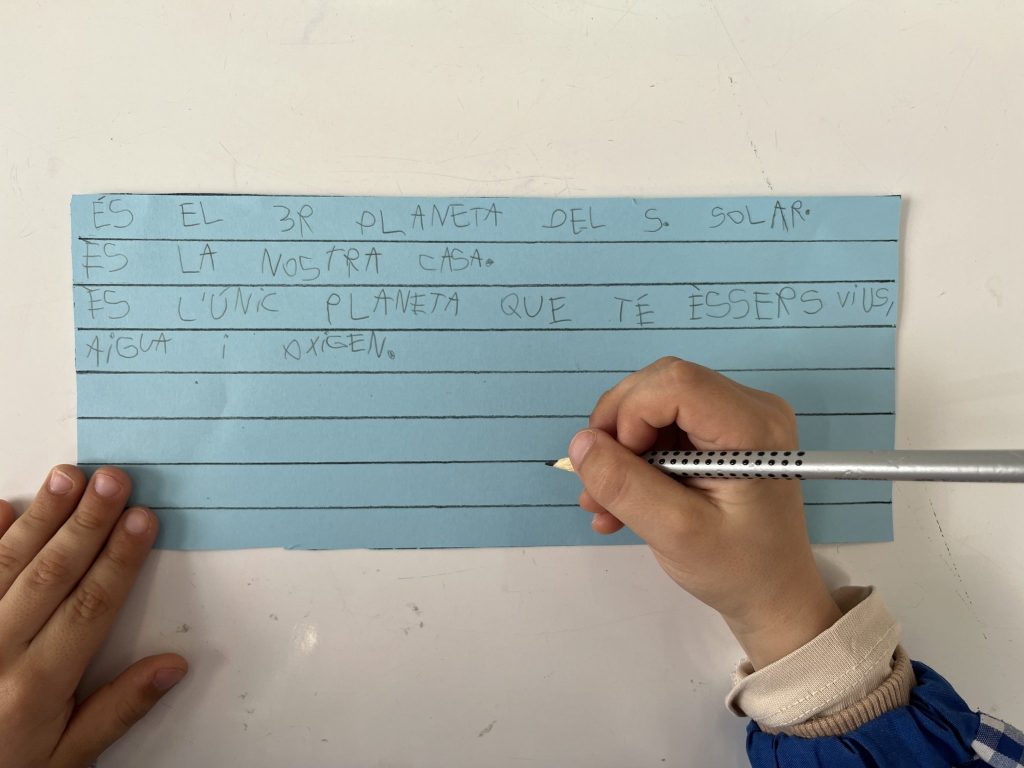 ÉS EL 3R PLANETA DEL S. SOLAR.
ÈS LA NOSTRA CASA.
ÈS L'ÚNIC PLANETA QUE TÉ ÈSSERS VIUS,
AIGUA i OXIGEN.